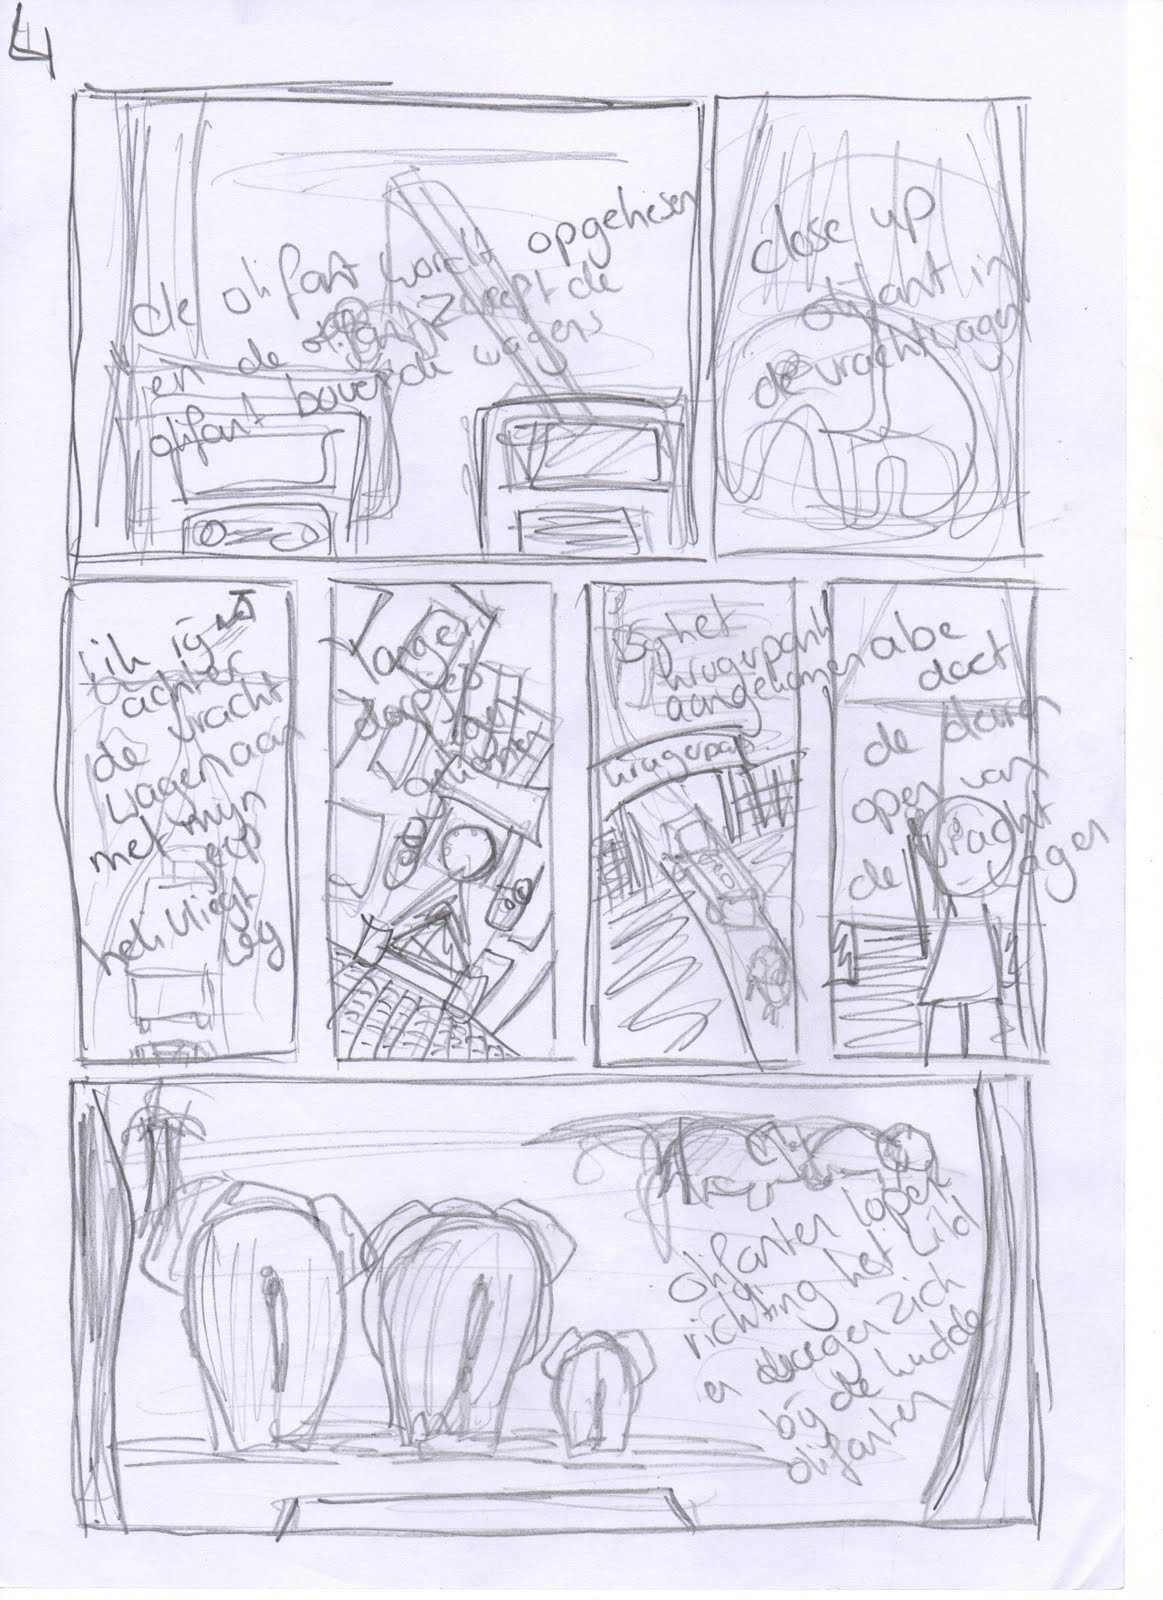 4
de olifant wordt opgehesen
en de olifant zweept de
olifant boven de wagens
close up
olifant in
de vrachtwagen
ik rij
achter
de vracht
wagen aan
met mijn
jeep
heli vliegt
weg
langs
dorpjes
bij het
krugerpark
aangekomen
krugerpark
abe
doet
de deuren
open van
de vracht
wagen
olifanten lopen
richting het wild
en zich
bij de kudde
olifanten